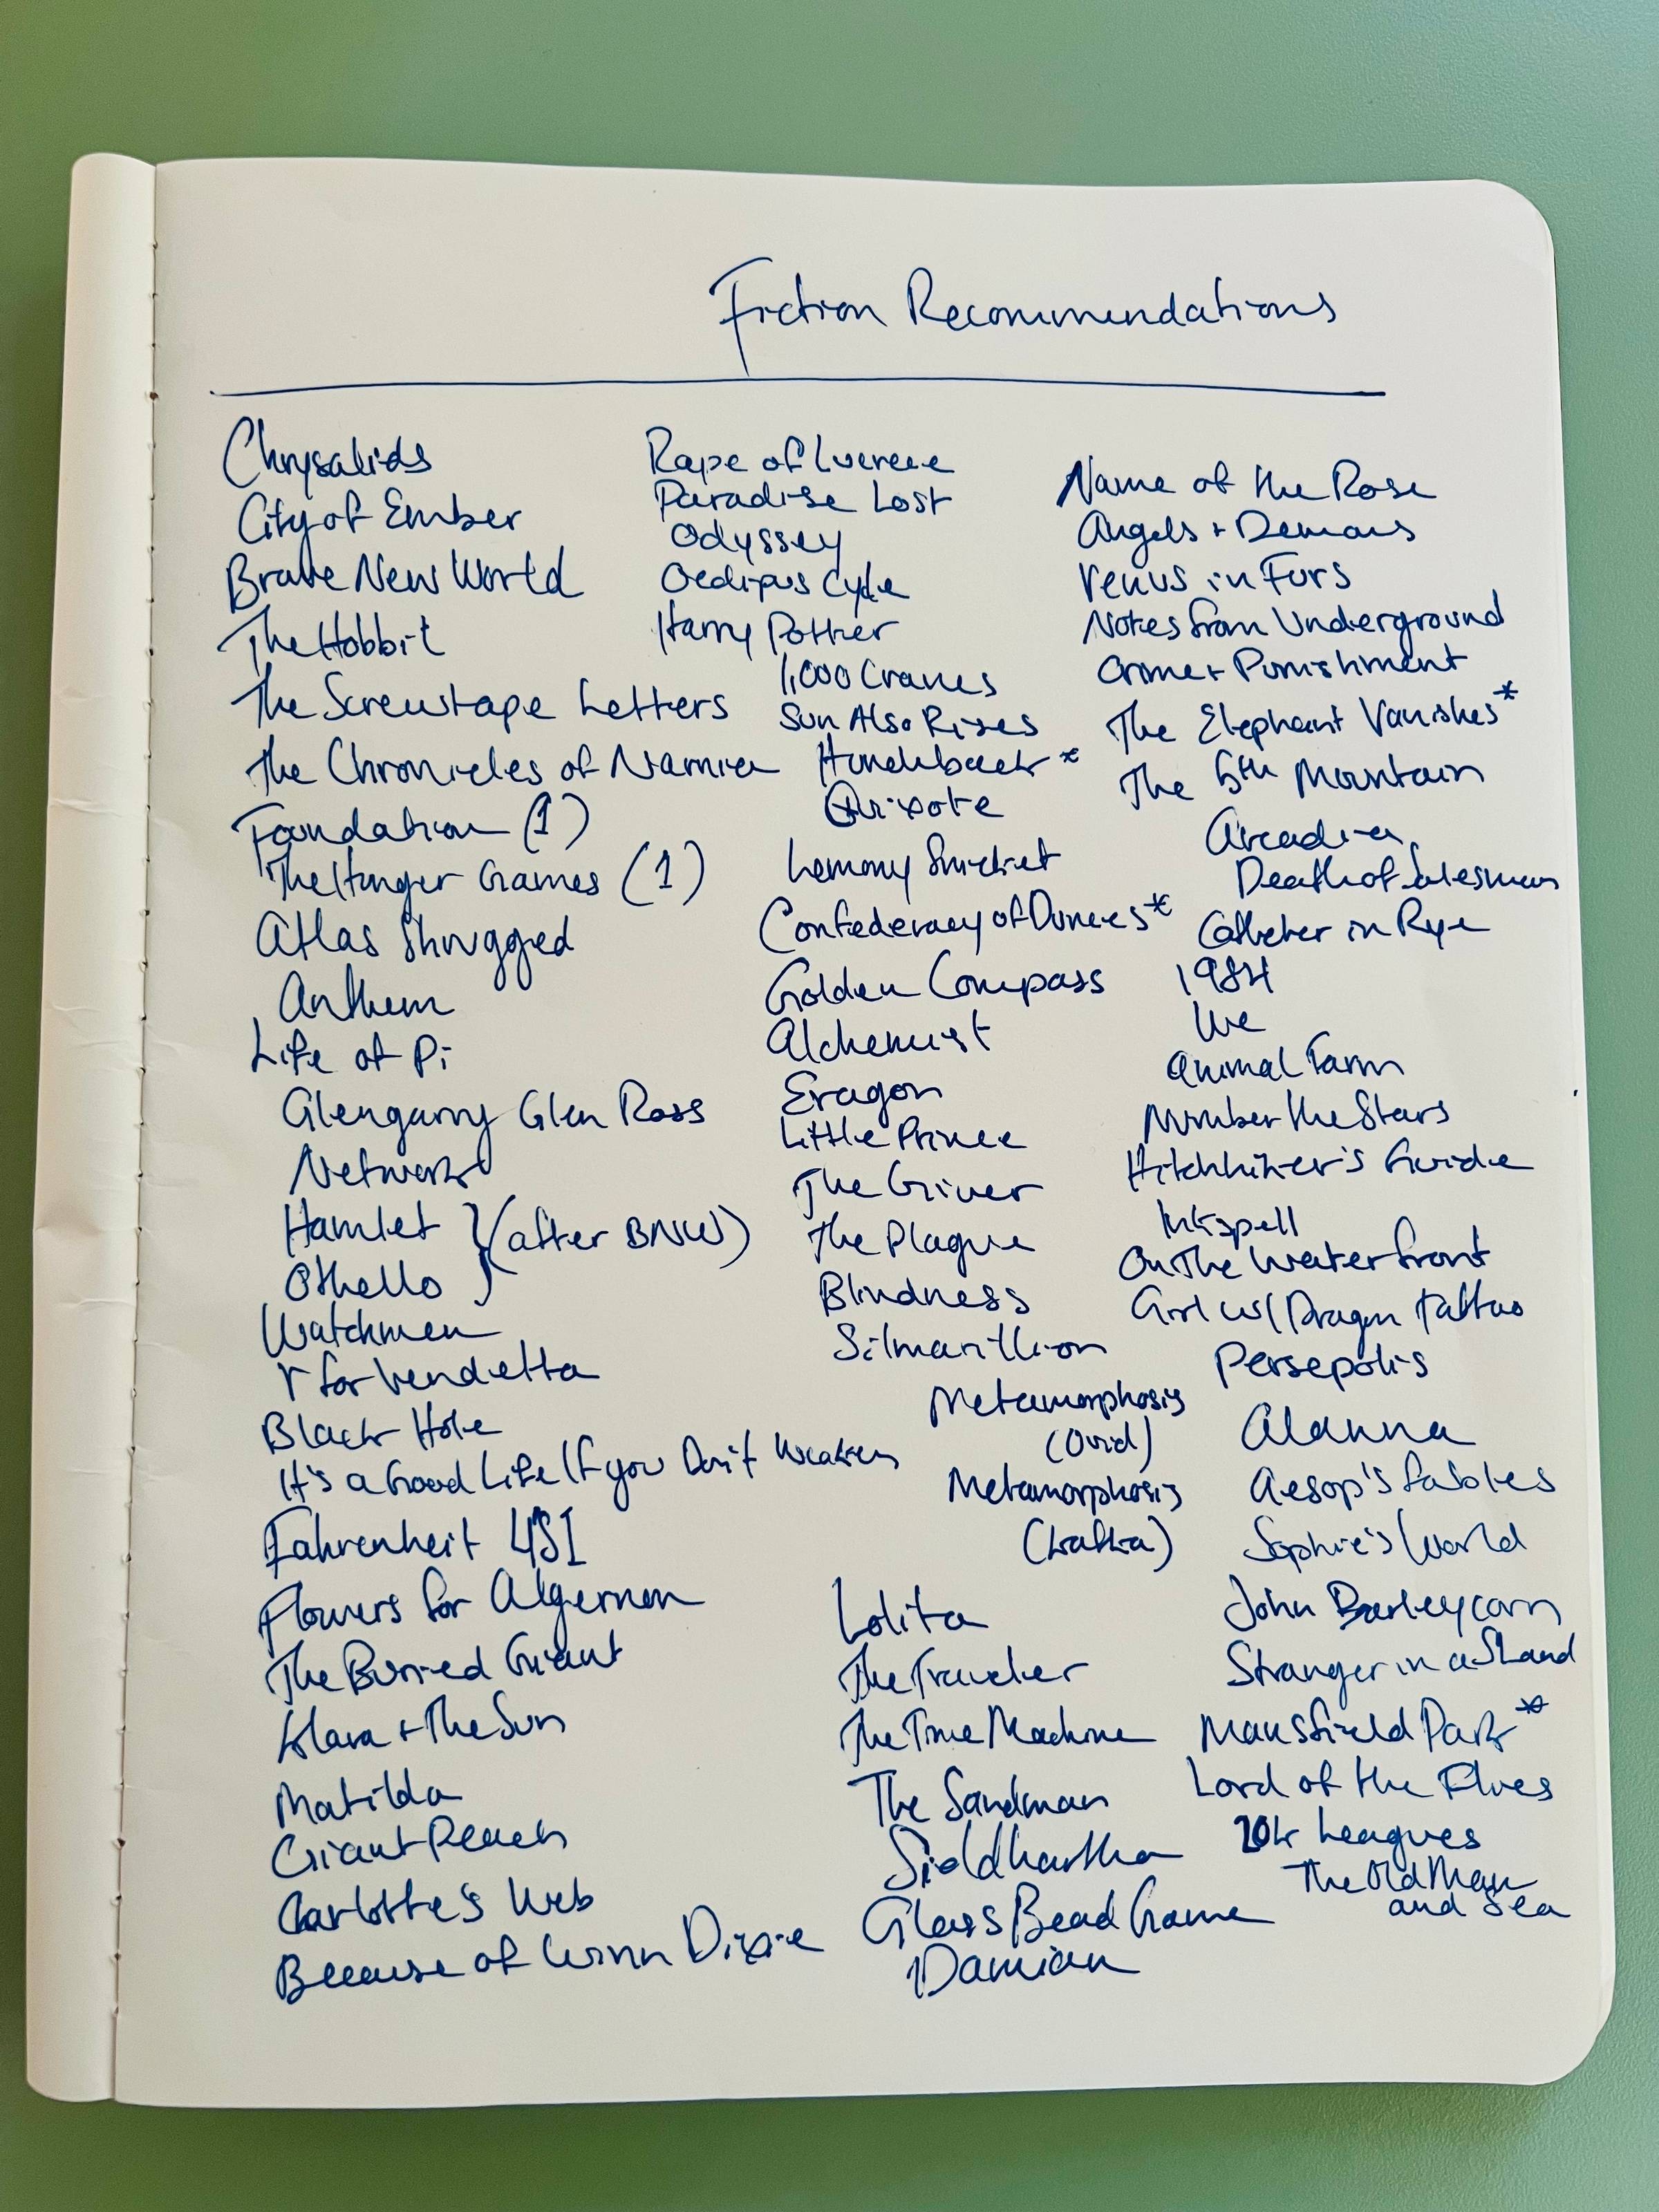 Fiction Recommendations
Chrysalids
City of Ember
Brave New World
The Hobbit
The Screwtape Letters
The Chronicles of Narnia
Foundation (1)
The Hunger Games (1)
Atlas Shrugged
Anthem
Life of Pi
Glengarry Glen Ross
Network
Hamlet } (after BNW)
Othello
Watchmen
V for Vendetta
Black Hole
It's a Good Life If you Don't Weaken
Fahrenheit 451
Flowers for Algernon
The Buried Giant
Klara + The Sun
Matilda
Giant Peach
Carlotte's Web
Because of Winn Dixie
Rape of Lucrece
Paradise Lost
Odyssey
Oedipus Cycle
Harry Potter
1,000 Cranes
Sun Also Rises
Hunchback *
Quixote
Lemony Snicket
Confederacy of Dunces *
Golden Compass
Alchemist
Eragon
Little Prince
The Giver
The Plague
Blindness
Silmarillion
Metamorphosis
(Ovid)
Metamorphosis
(Kafka)
Lolita
The Traveler
The Time Machine
The Sandman
Siddhartha
Glass Bead Game
Damian
Name of the Rose
Angels + Demons
Venus in Furs
Notes from Underground
Crime + Punishment
The Elephant Vanishes *
The 5th Mountain
Arcadia
Death of Salesman
Catcher in Rye
1984
We
Animal Farm
Number the Stars
Hitchhiker's Guide
Inkspell
On The Waterfront
Girl w/ Dragon tattoo
Persepolis
Alanna
Aesop's fables
Sophie's World
John Barleycorn
Stranger in a S Land
Mansfield Park *
Lord of the Flies
20k Leagues
The Old Man
and Sea